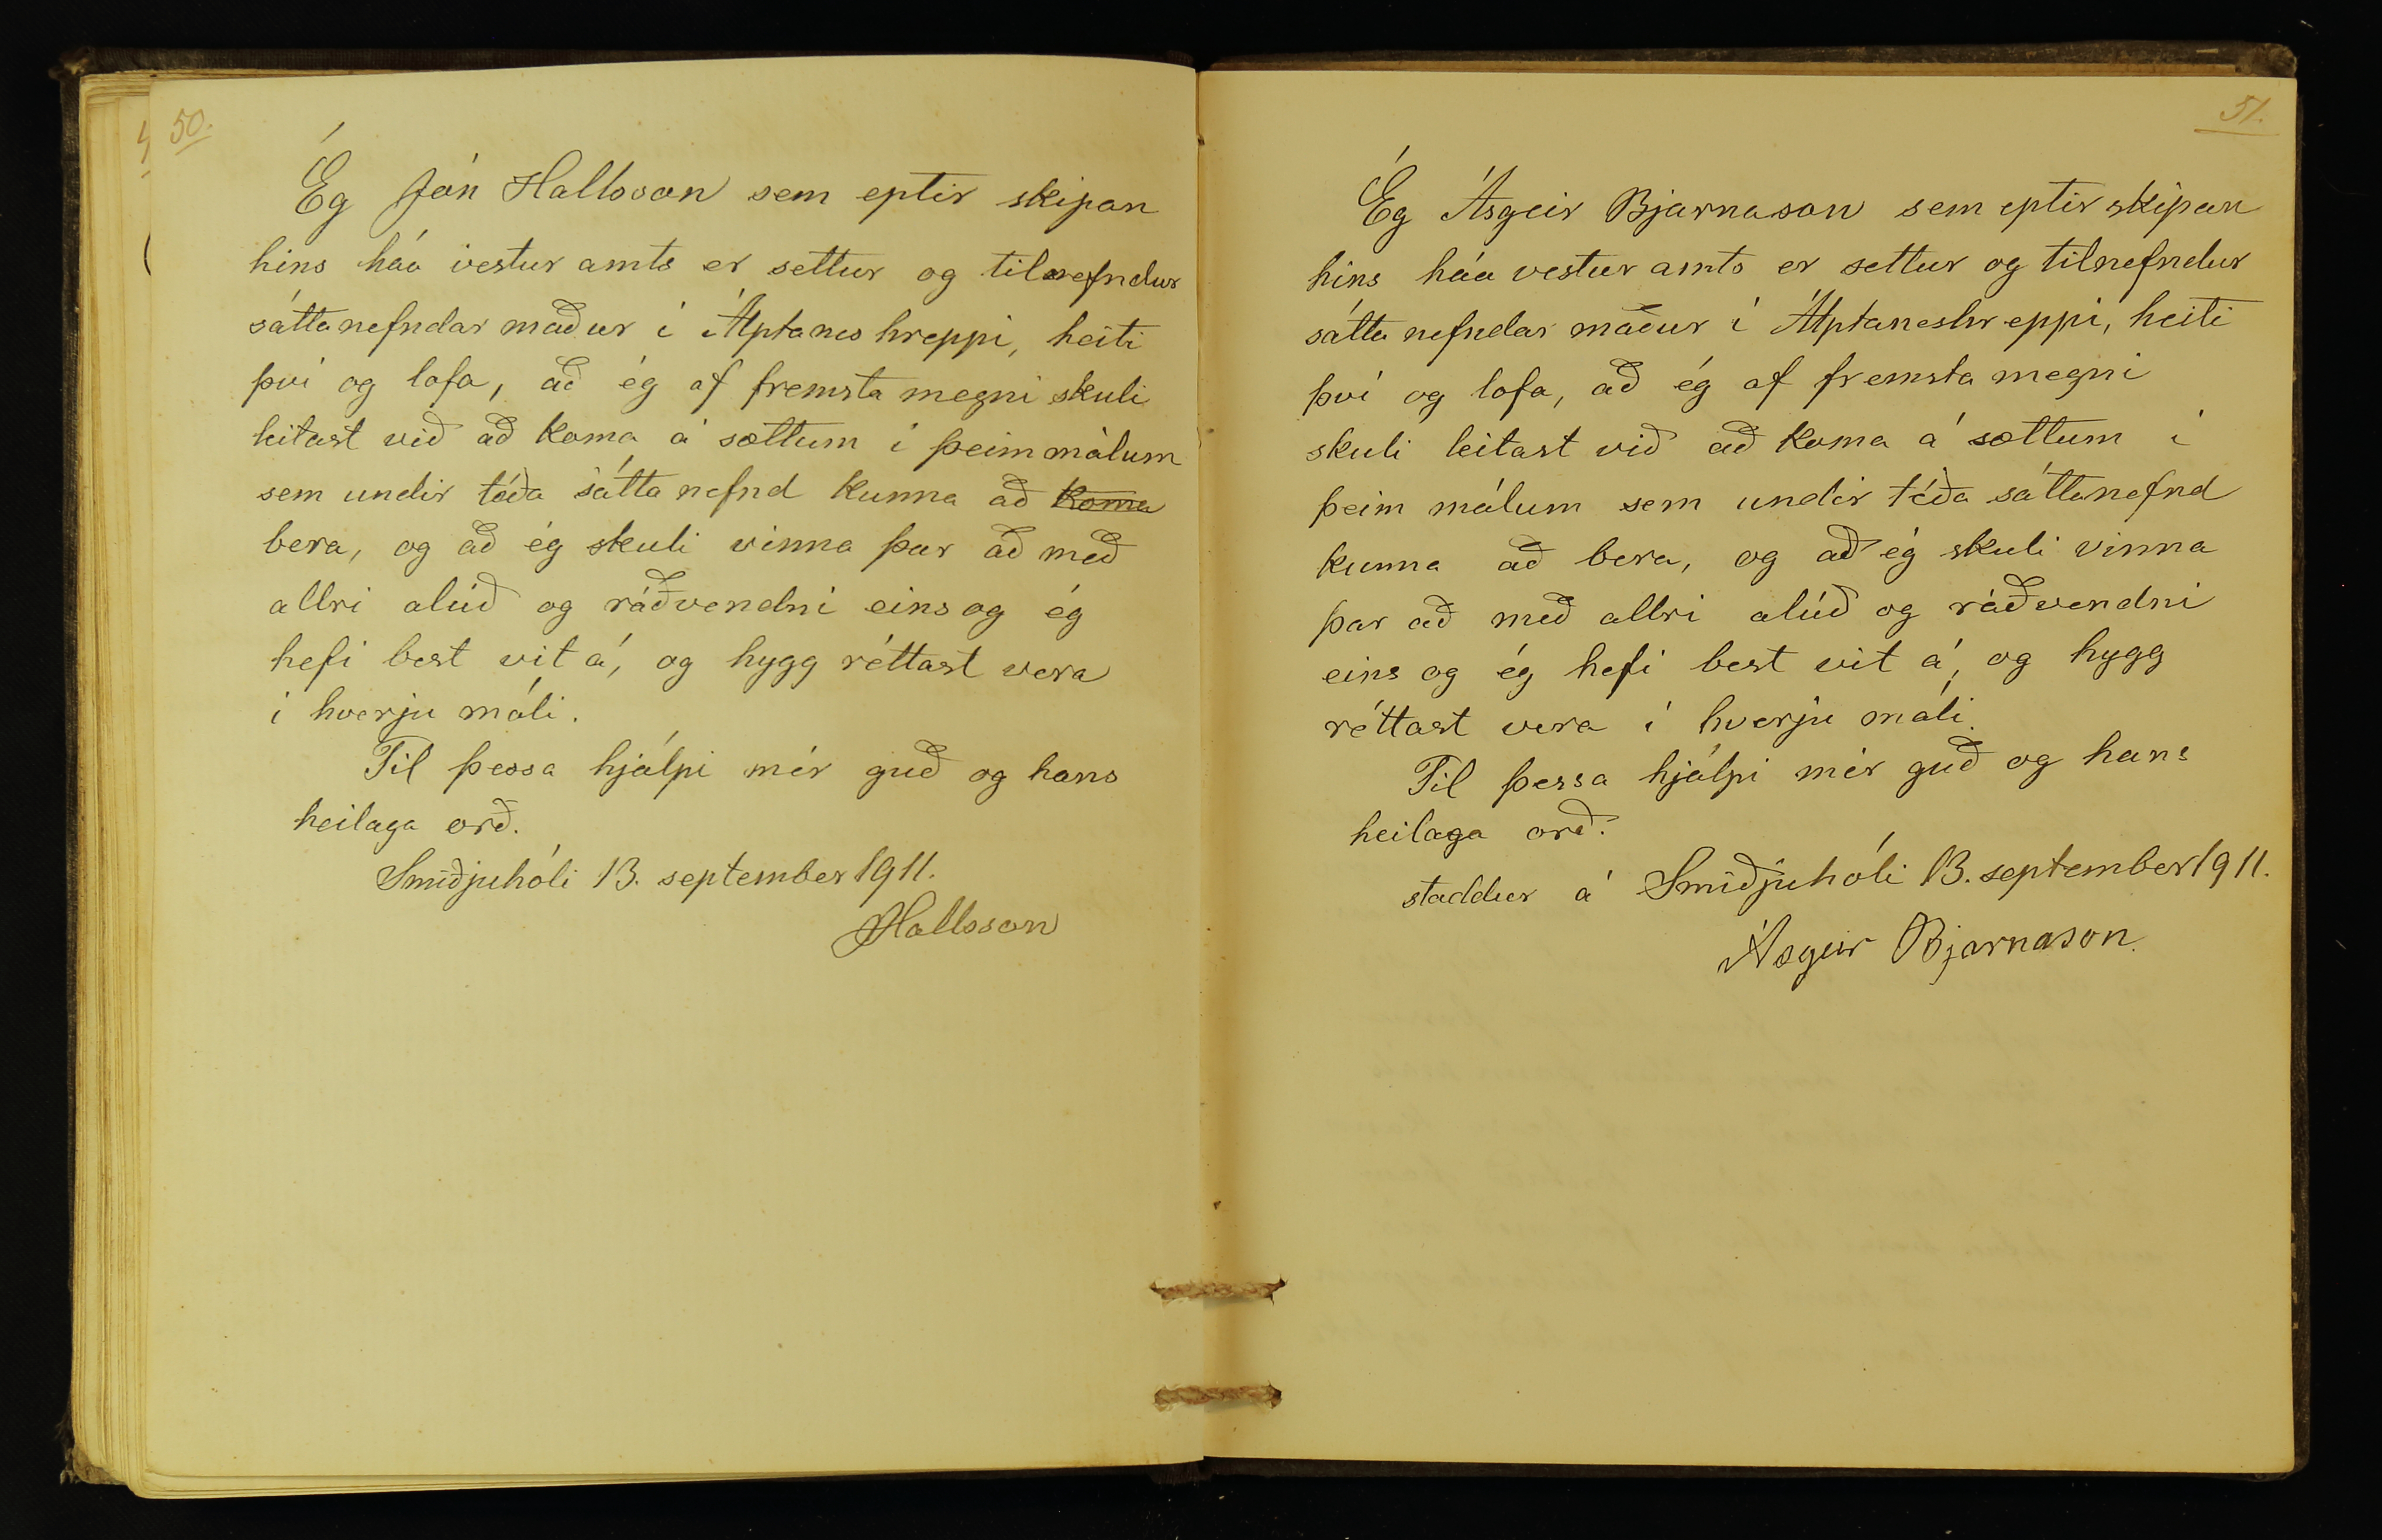 50.
Ég Jón Hallsson sem eptir skipan
hins háa vestur amts er settur og tilnefndur
sáttanefndar maður í Álptanes hreppi, heiti
því og lofa, að ég af fremsta megni skuli
leitast við að koma á sættum í þeim málum
sem undir téða sátta nefnd kunna að koma
bera, og að ég skuli vinna þar að með
allri alúð og ráðvendni eins og ég
hefi best vit á, og hygg réttast vera
í hverju máli.
Til þessa hjálpi mér guð og hans
heilaga orð.
Smiðjuhóli 13. september 1911.
JHallsson
51.
Ég Ásgeir Bjarnason sem eptir skipan
hins háa vestur amts er settur og tilnefndur
sátta nefndar maður í Álptaneshreppi, heiti
því og lofa, að ég af fremsta megni
skuli leitast við að koma á sættum í
þeim málum sem undir téða sáttanefnd
kunna að bera, og að ég skuli vinna
þar að með allri alúð og ráðvendni
eins og ég hefi best vit á, og hygg
réttast vera í hverju máli.
Til þessa hjálpi mér guð og hans
heilaga orð.
staddur á Smiðjuhóli 13. september 1911.
Ásgeir Bjarnason.